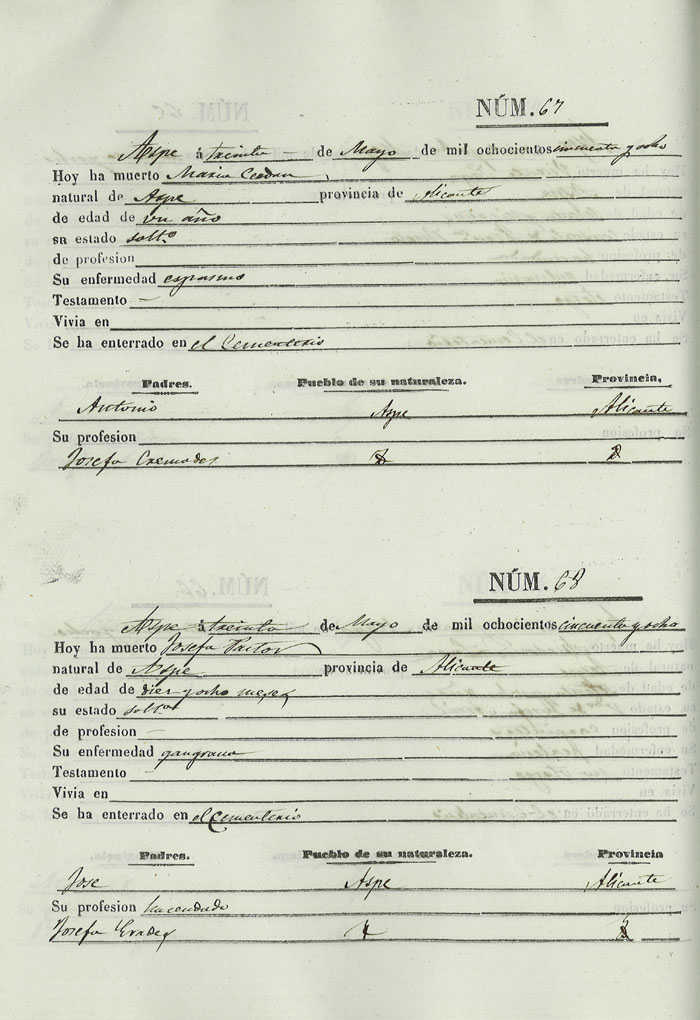 NÚM. 67
Aspe á treinta de Mayo de mil ochocientos cincuenta y ocho
Hoy ha muerto Maria Cerdan
natural de Aspe provincia de Alicante
de edad de un año
su estado soltº
de profesion
Su enfermedad espasmo
Testamento —
Vivia en
Se ha enterrado en el Cementerio
Padres. Pueblo de su naturaleza. Provincia,
Antonio Aspe Alicante
Su profesion
Josefa Cremades
NÚM. 68
Aspe á treinta de Mayo de mil ochocientos cincuenta y ocho
Hoy ha muerto Josefa Pastor
natural de Aspe provincia de Alicante
de edad de diez y ocho meses
su estado soltª
de profesion —
Su enfermedad gangrana
Testamento —
Vivia en
Se ha enterrado en el Cementerio
Padres. Pueblo de su naturaleza. Provincia
Jose Aspe Alicante
Su profesion hacendado
Josefa